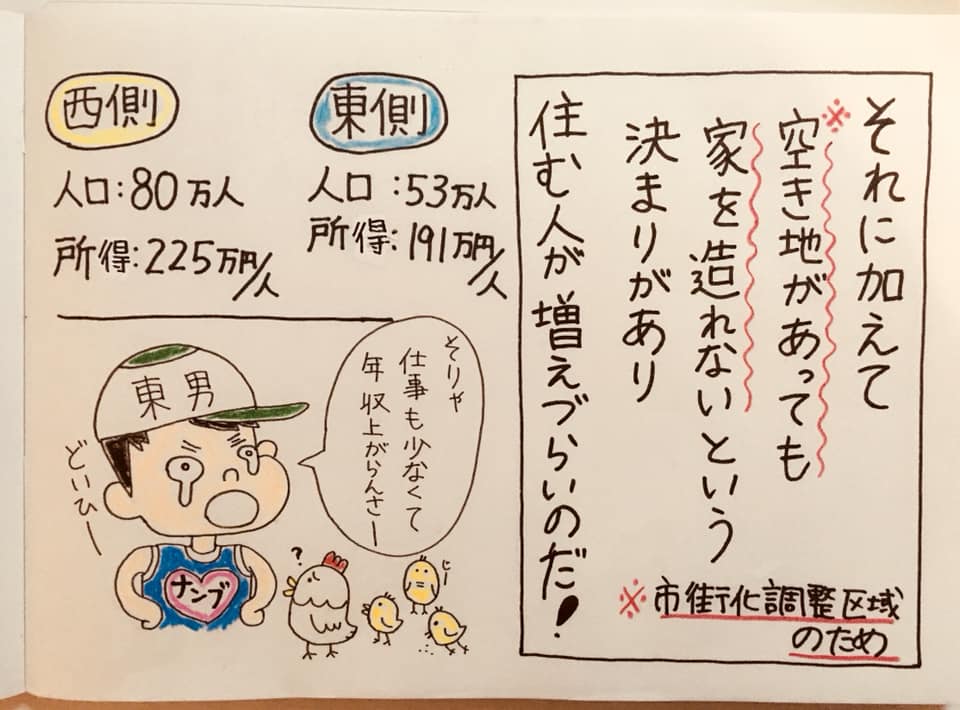 それに加えて
※空き地があっても
家を造れないという
決まりがあり
住む人が増えづらいのだ!
※市街化調整区域
のため
東側
人口:53万人
所得:191万円/人
西側
人口:80万人
所得:225万円/人
そりゃ
仕事も少なくて
年収上がらんさー
東男
どいひー
ナンブ
?
じー